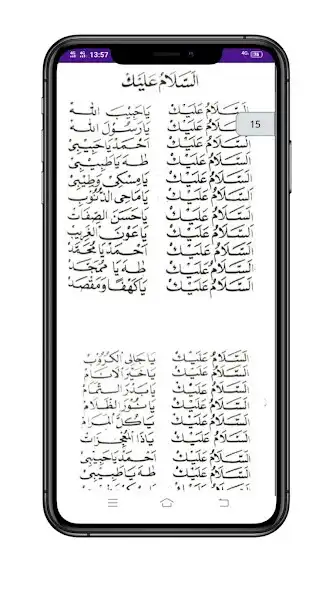 13:57
4G
السَّلَامُ عَلَيْكَ
15
السَّلَامُ عَلَيْكَ يَا حَبِيْبَ اللهِ
السَّلَامُ عَلَيْكَ يَارَسُوْلَ اللهِ
السَّلَامُ عَلَيْكَ أَحْمَدْ يَاحَبِيْبِيْ
السَّلَامُ عَلَيْكَ طٰهَ يَاطَبِيْبِيْ
السَّلَامُ عَلَيْكَ يَامِسْكِيْ وَطِيْبِيْ
السَّلَامُ عَلَيْكَ يَامَاحِي الذُّنُوْبِ
السَّلَامُ عَلَيْكَ يَاحَسَنَ الصِّفَاتِ
السَّلَامُ عَلَيْكَ يَاعَوْنَ الْغَرِيْبِ
السَّلَامُ عَلَيْكَ أَحْمَدْ يَا مُحَمَّدْ
السَّلَامُ عَلَيْكَ طٰهَ يَا مُمَجَّدْ
السَّلَامُ عَلَيْكَ يَاكَهْفًا وَمَقْصَدْ
السَّلَامُ عَلَيْكَ يَاجَالِي الْكُرُوْبِ
السَّلَامُ عَلَيْكَ يَاخَيْرَ الْاَنَامِ
السَّلَامُ عَلَيْكَ يَابَدْرَ التَّمَامِ
السَّلَامُ عَلَيْكَ يَانُوْرَ الظَّلَامِ
السَّلَامُ عَلَيْكَ يَاكُلَّ الْمَرَامِ
السَّلَامُ عَلَيْكَ يَاذَا الْمُعْجِزَاتِ
السَّلَامُ عَلَيْكَ أَحْمَدْ يَاحَبِيْبِيْ
السَّلَامُ عَلَيْكَ طٰهَ يَاطَبِيْبِيْ